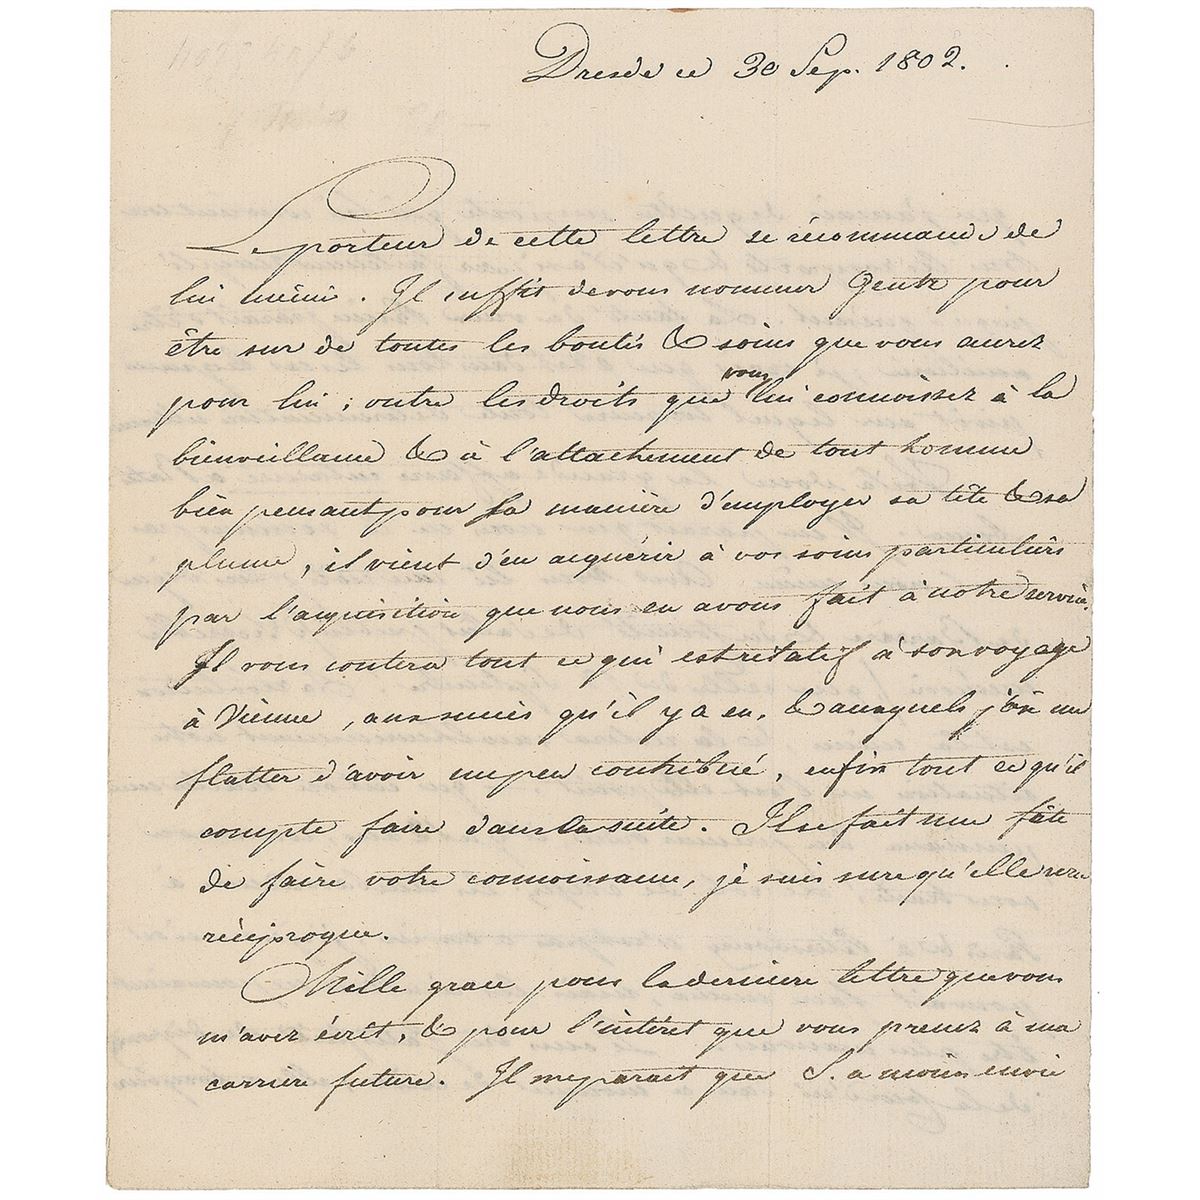 Dresde ce 30 Sep. 1802.
Le porteur de cette lettre se récommande de
lui même. Il suffit de vous nommer Gentz pour
être sur de toutes les boutés & soins que vous aurez
pour lui; outre les droits que vous lui connoissez à la
bienveillance & à l'attachement de tout homme
bien pensant pour sa manière d'employer sa tête & sa
plume, il vient d'en acquérir à vos soins particuliers
par l'acquisition que nous en avons fait à notre service.
Il vous contera tout ce qui est rélatif à son voyage
à Vienne, aux succès qu'il y a eu, & auxquels j'ose me
flatter d'avoir un peu contribué, enfin tout ce qu'il
compte faire dans la suite. Il se fait une fête
de faire votre connoissance, je suis sure qu'elle sera
réciproque.
Mille grace pour la derniere lettre que vous
m'avez écrit, & pour l'intéret que vous prenez à ma
carriere future. Il me parait que S. a moins envie